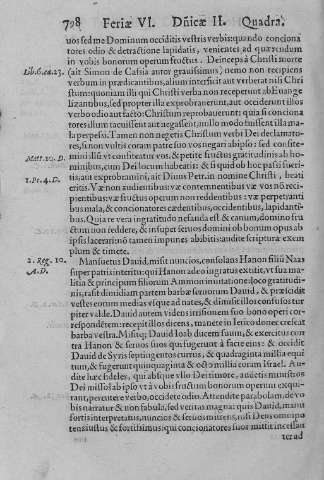 798 Feriæ VI. Dñicæ II. Quadra.
uos sed me Dominum occiditis vestris verbis: quando conciona
tores odio & detractione lapidatis, venientes ad quærendum
in vobis bonorum operum fructus. Deinceps à Christi morte
Lib. 6. ca. 23.
(ait Simon de Cassia autor grauissimus) nemo non recipiens
verbum in prædicantibus, alium interficit aut verberat nisi Chri
stum: quoniam illi qui Christi verba non receperunt ab Euange
lizantibus, sed propter illa exprobrauerunt, aut occiderunt illos
verbo odio aut facto: Christum reprobauerunt: quia si conciona
tores illum tacuissent aut negassent, nullo modo fuissent illa ma
la perpessi. Tam o non negetis Christum verbi Dei declamato
res, si non vultis coram patre suo vos negari ab ipso: sed con fite-
Matt. 10. D.
mini illū vt confiteatur vos, & petite fructus gratitudinis ab ho
minibus, cum Dei locum habeatis: & si quid ob hoc passi fueri-
1. Pe. 4. D.
tis, aut exprobramini, ait Diuus Petr. in nomine Christi, beati
eritis. Væ non audientibus: væ contemnentibus væ vos nō reci
pientibus: væ fructus operum non reddentibus: væ perpetranti
bus mala, & concionatores cædentibus, occidentibus, lapidanti
bus. Quare vera ingratitudo nefanda est & canum, domino fru
ctum non reddere, & insuper seruos domini ob bonum opus ab
ipsis lacerari: ō tamen impunes abibitis: audite scripturæ exem
plum & timete.
2. Reg. 10.
A. D.
Mansuetus Dauid, misit nuncios, consolans Hanon filiū Naas
super patris interitu: qui Hanon adeo ingratus extitit, vt sua ma
litia & principum filiorum Ammon inuitatione: loco gratitudi
nis, rasit dimidiam partem barbæ seruorum Dauid. & præscidit
vestes eorum medias vsque ad nates, & dimisit illos confusos tur
piter valde. Dauid autem videns irrisionem suo bono operi cor-
respondētem: recepit illos dicens, manete in Iericho donec crescat
barba vestra. Misitq; Dauid Ioab ducem suum, & exercitus con
tra Hanon & seruos suos qui fugerunt à facie eius: & occidit
Dauid de Syris septingentos currus, & quadraginta millia equi
tum, & fugerunt quinquaginta & octo millia coram Israel. Au-
dite hæc fideles, qui absque vllo Dei timore, audetis ministros
Dei missos ab ipso vt à vobis fructum bonorum operum exqui
rant, percutere verbo, occidete odio. Attendite parabolam, de vo
bis narratur & non fabula, sed veritas magna: quis Dauid, manu
fortis interpretatus, nuncios & seruos mittens, nisi Deus omnipo
tens iustus & fortissimus qui concionatores suos mittit incessan
ter ad